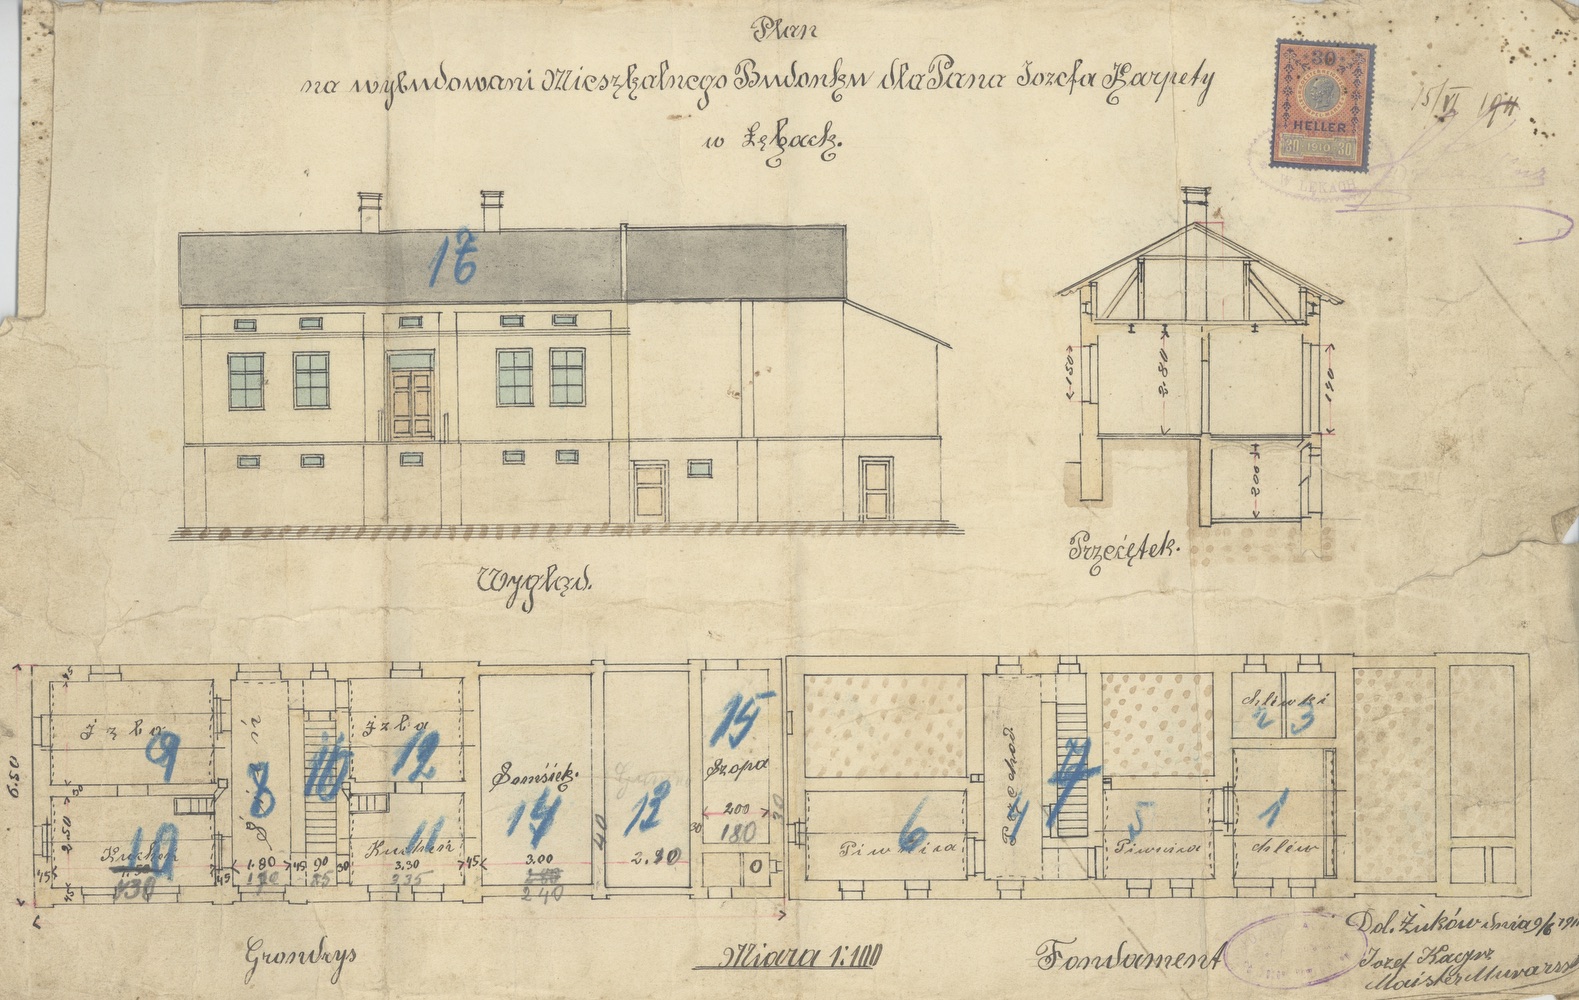 Plan
na wybudowani Mieszkalnego Budonku dla Pana Jozefa Karpety
w Łękach.
30
HELLER
30 1910 30
15/VI 1911
ŁĘKACH
16
2.80
1.50
2.00
Przećętek.
Wygłąd.
Izba
9
8
10
Izba
12
Somśiek.
14
13
15
Szopa
200
180
6.50
2.50
Kuchnia
10
130
45
1.80
45
90
30
Kuchnia
11
3.30
335
45
3.00
2 40
40
2.90
30
Piwnica
6
7
Piwnica
5
chlewki
2 3
1
chlew
Grondrys
Miara 1:100
Fondament
Dol. Żuków dnia 9/6 1911
Jozef Kaczyrz
Maister Murarski